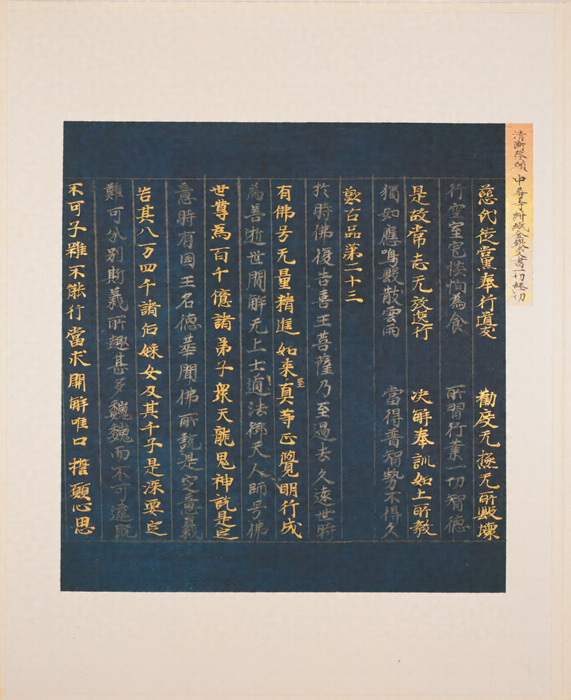 清衡發願　中尊寺紺紙金銀交書一切経切
慈氏從黨奉行道交　勸度无極无所毀壞
行空室宅惔怕為食　所習行業一切智德
是故常志无放逸行　决解奉訓如上所教
猶如應鳴縣散雲雨　當得普智勢不得久
歎古品第二十三
於時佛復告喜王菩薩乃至過去久遠世時
有佛号无量精進如来至真等正覺明行成
為善逝世間解无上士道法御天人師号佛
世尊為百千億諸弟子衆天龍鬼神說是定
意時有国王名德華聞佛所說是定意義
告其八万四千諸后婇女及其千子是深要定
難可分別斯義所趣甚多巍巍而不可違既
不可子難不能行當求開解唯口擔願心思